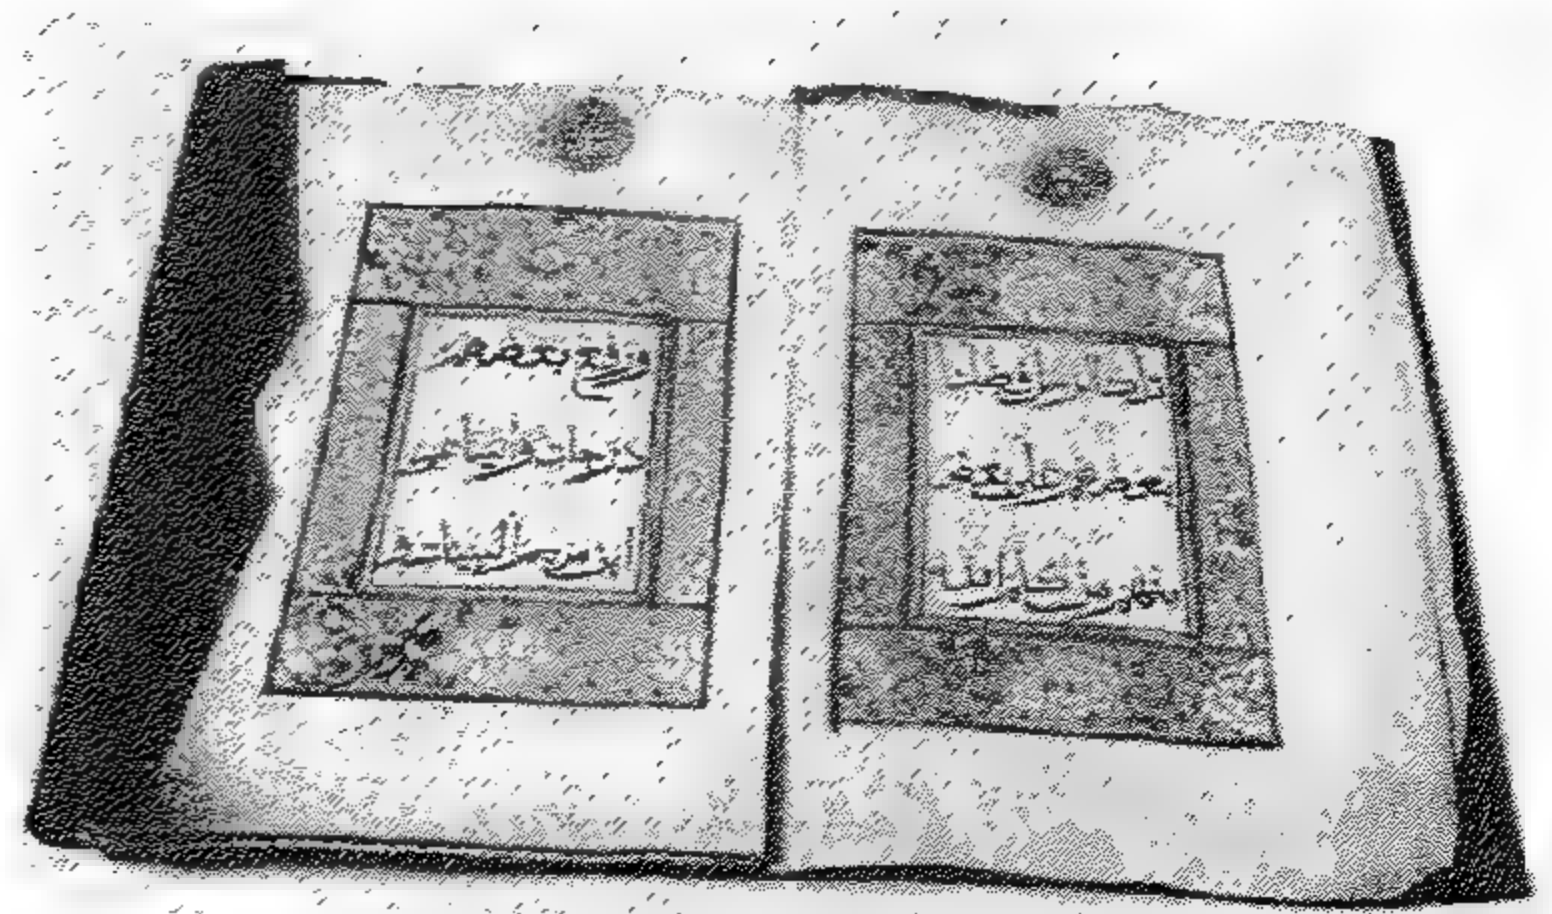 تلك الرسل فضلنا
بعضهم على بعض
منهم من كلم الله
ورفع بعضهم
درجات واتينا عيسى
ابن مريم البينات